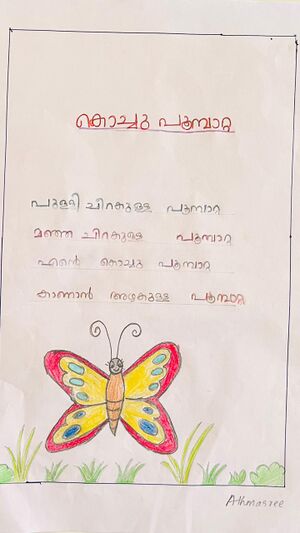 കൊച്ചു പൂമ്പാറ്റ
പുള്ളി ചിറകുള്ള പൂമ്പാറ്റ
മഞ്ഞ ചിറകുള്ള പൂമ്പാറ്റ
എൻ്റെ കൊച്ചു പൂമ്പാറ്റ
കാണാൻ അഴകുള്ള പൂമ്പാറ്റ
Athmasree